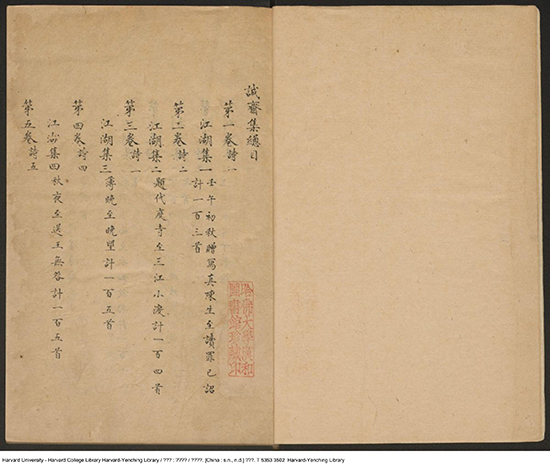 誠齋集總目
第一卷詩一
江湖集一壬午初秋贈寫真陳生至讀罪已詔
計一百三首
第二卷詩二
江湖集二題代度寺至三江小渡計一百四首
第三卷詩
江湖集三薄晚至晚望計一百五首
第四卷詩四
江湖集四秋夜至送王無咎計一百五首
第五卷詩五
哈佛大學漢和
圖書館珍藏印
Harvard University - Harvard College Library Harvard-Yenching Library / ??? : ???? / ????. [China : s.n., n.d.] ???. T 5353 3502 Harvard-Yenching Library